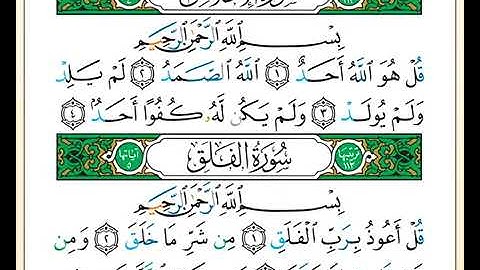 بِسْمِ ٱللَّهِ ٱلرَّحْمَٰنِ ٱلرَّحِيمِ
قُلْ هُوَ ٱللَّهُ أَحَدٌ ١ ٱللَّهُ ٱلصَّمَدُ ٢ لَمْ يَلِدْ
وَلَمْ يُولَدْ ٣ وَلَمْ يَكُن لَّهُۥ كُفُوًا أَحَدٌۢ ٤
ترتيبها ١١٣ سُورَةُ الفَلَقِ آياتها ٥
بِسْمِ ٱللَّهِ ٱلرَّحْمَٰنِ ٱلرَّحِيمِ
قُلْ أَعُوذُ بِرَبِّ ٱلْفَلَقِ ١ مِن شَرِّ مَا خَلَقَ ٢ وَمِن